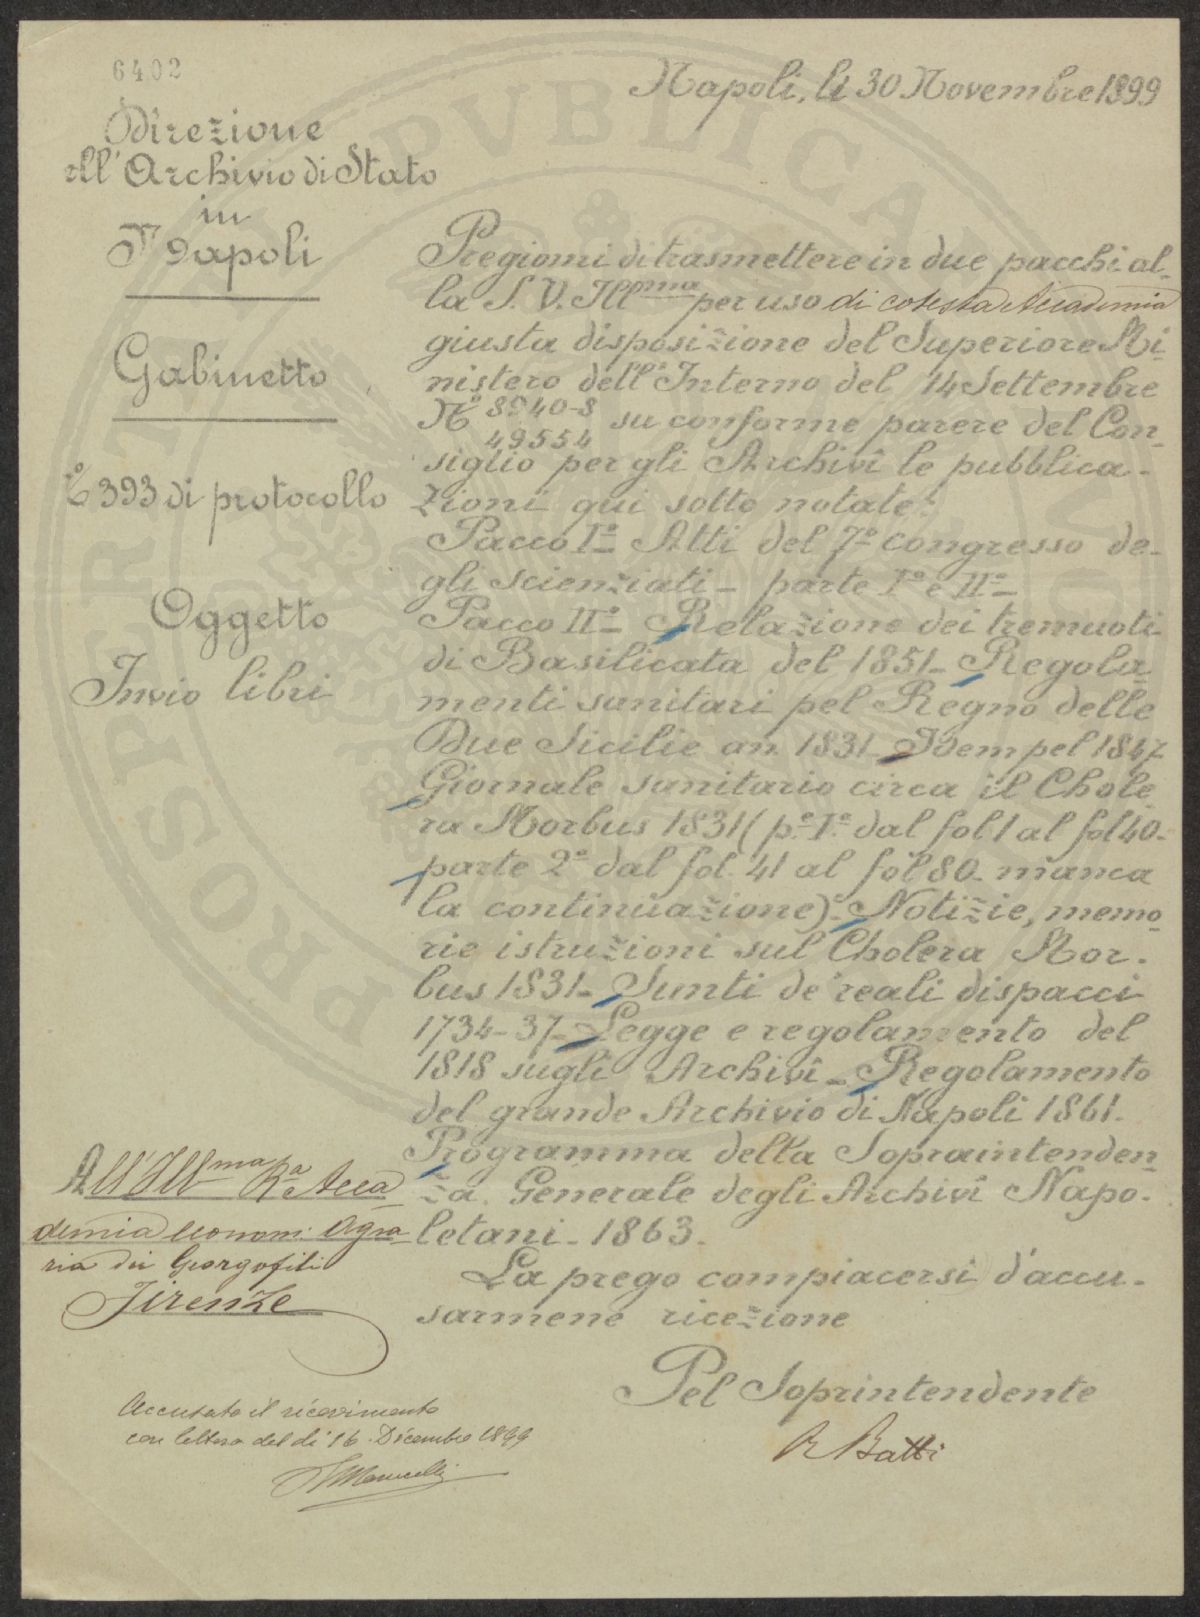 6402
Napoli, li 30 Novembre 1899
Direzione
ell'Archivio di Stato
in
Napoli
Gabinetto
393 di protocollo
Oggetto
Invio libri
Pregiomi di trasmettere in due pacchi al-
la S. V. Ill.ma per uso di cotesta Accademia
giusta disposizione del Superiore Mi-
nistero dell'Interno del 14 Settembre
N.° 8940-8
49554 su conforme parere del Con-
siglio per gli Archivî le pubblica-
zioni qui sotto notate:
Pacco I.° Atti del 7.° congresso de-
gli scienziati - parte I.ª e II.ª
Pacco II.° Relazione dei tremuoti
di Basilicata del 1851 - Regola-
menti sanitari pel Regno delle
Due Sicilie an. 1831 - Idem pel 1847
Giornale sanitario circa il Chole-
ra Morbus 1831 (p.e I.ª dal fol 1 al fol 40 -
parte 2.ª dal fol. 41 al fol 80 - manca
la continuazione) - Notizie, memo-
rie istruzioni sul Cholera Mor-
bus 1831 - Sunti de' reali dispacci
1734-37 - Legge e regolamento del
1818 sugli Archivî - Regolamento
del grande Archivio di Napoli 1861.
Programma della Sopraintenden-
za Generale degli Archivî Napo-
letani - 1863 -
La prego compiacersi d'accu-
sarmene ricezione
Pel Soprintendente
R Batti
All'Ill.ma R.a Acca-
demia econom: Agra-
ria dei Georgofili
Firenze
Accusato il ricevimento
con lettera del dì 16 Dicembre 1899
PROSPERITATI PVBLICAE